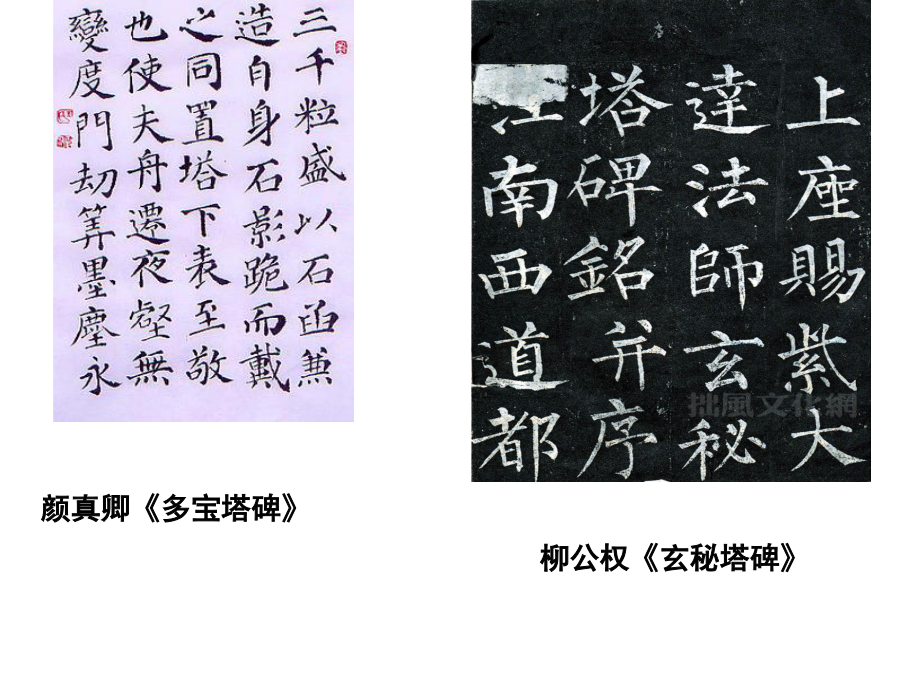 三千粒盛以石函兼
造自身石影跪而戴
之同置塔下表至敬
也使夫舟遷夜壑無
變度門劫筭墨塵永
上座賜紫大
達法師玄秘
塔碑銘并序
江南西道都
拙風文化網
颜真卿《多宝塔碑》
柳公权《玄秘塔碑》